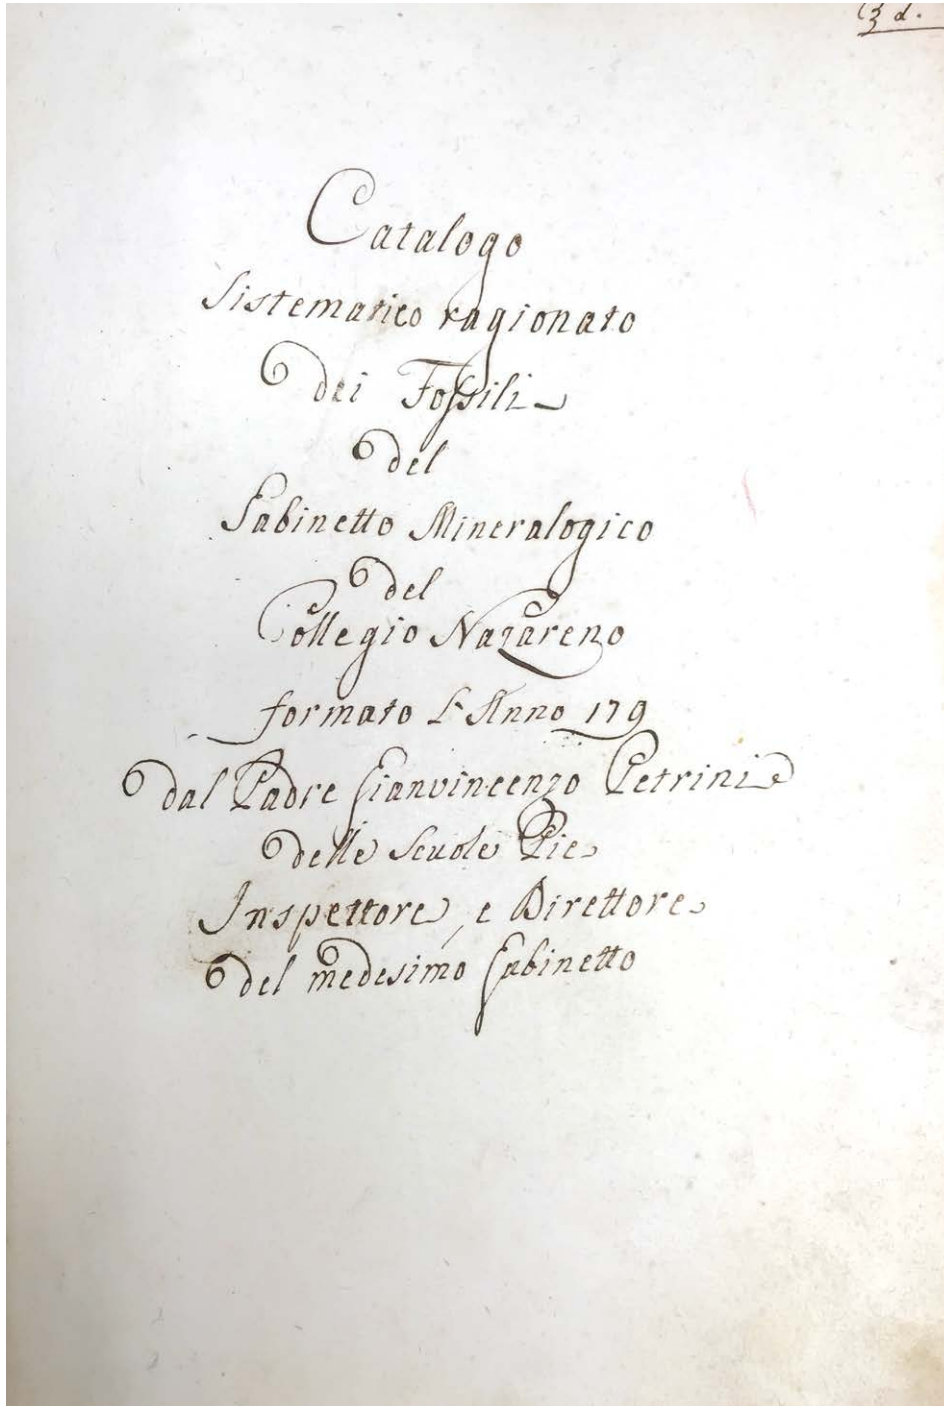 3 d.
Catalogo
Sistematico ragionato
dei Fossili
del
Gabinetto Mineralogico
del
Collegio Nazareno
formato L'Anno 179
dal Padre Gianvincenzo Petrini
delle Scuole Pie
Inspettore, e Direttore
del medesimo Gabinetto